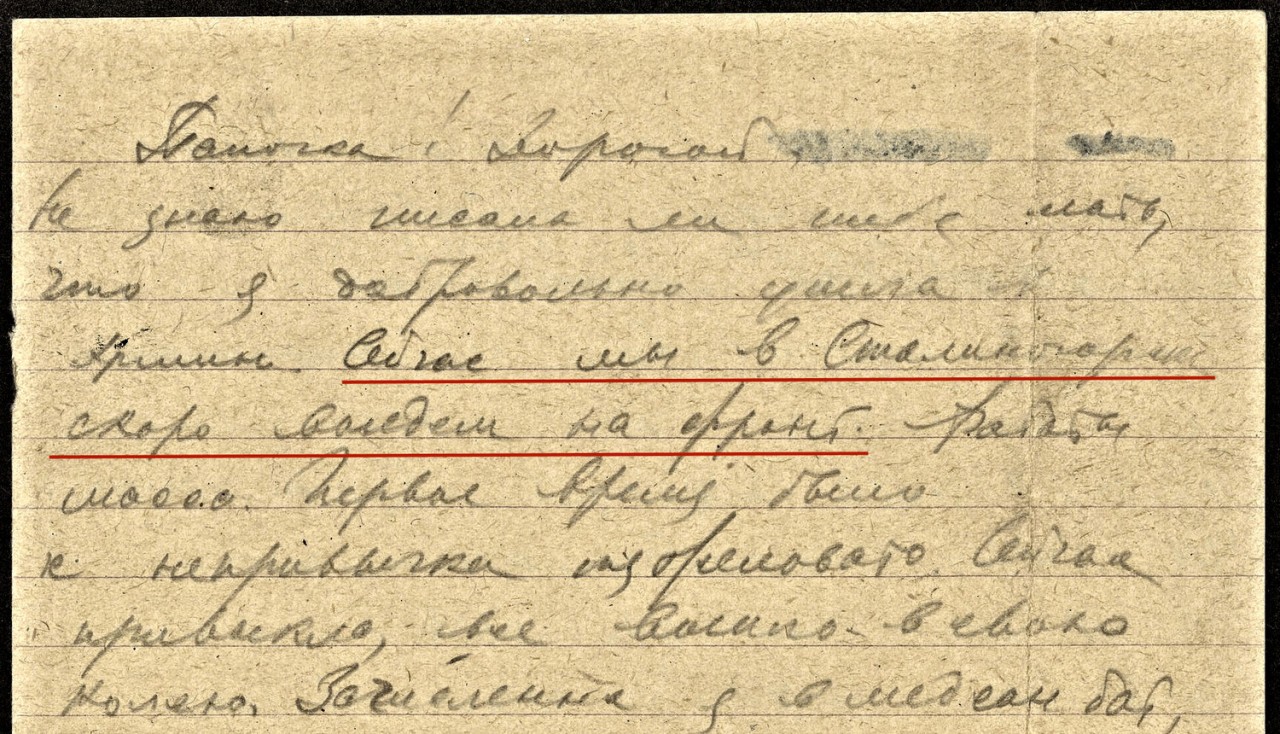 Папочка! Дорогой,
Не знаю писала ли тебе мать,
что я добровольно ушла в
Армию. Сейчас мы в Сталиногорске
скоро выедем на фронт. Работы
масса. Первое время было
с непривычки тяжеловато. Сейчас
привыкла, все вошло в свою
колею. Зачислена я в медсанбат,